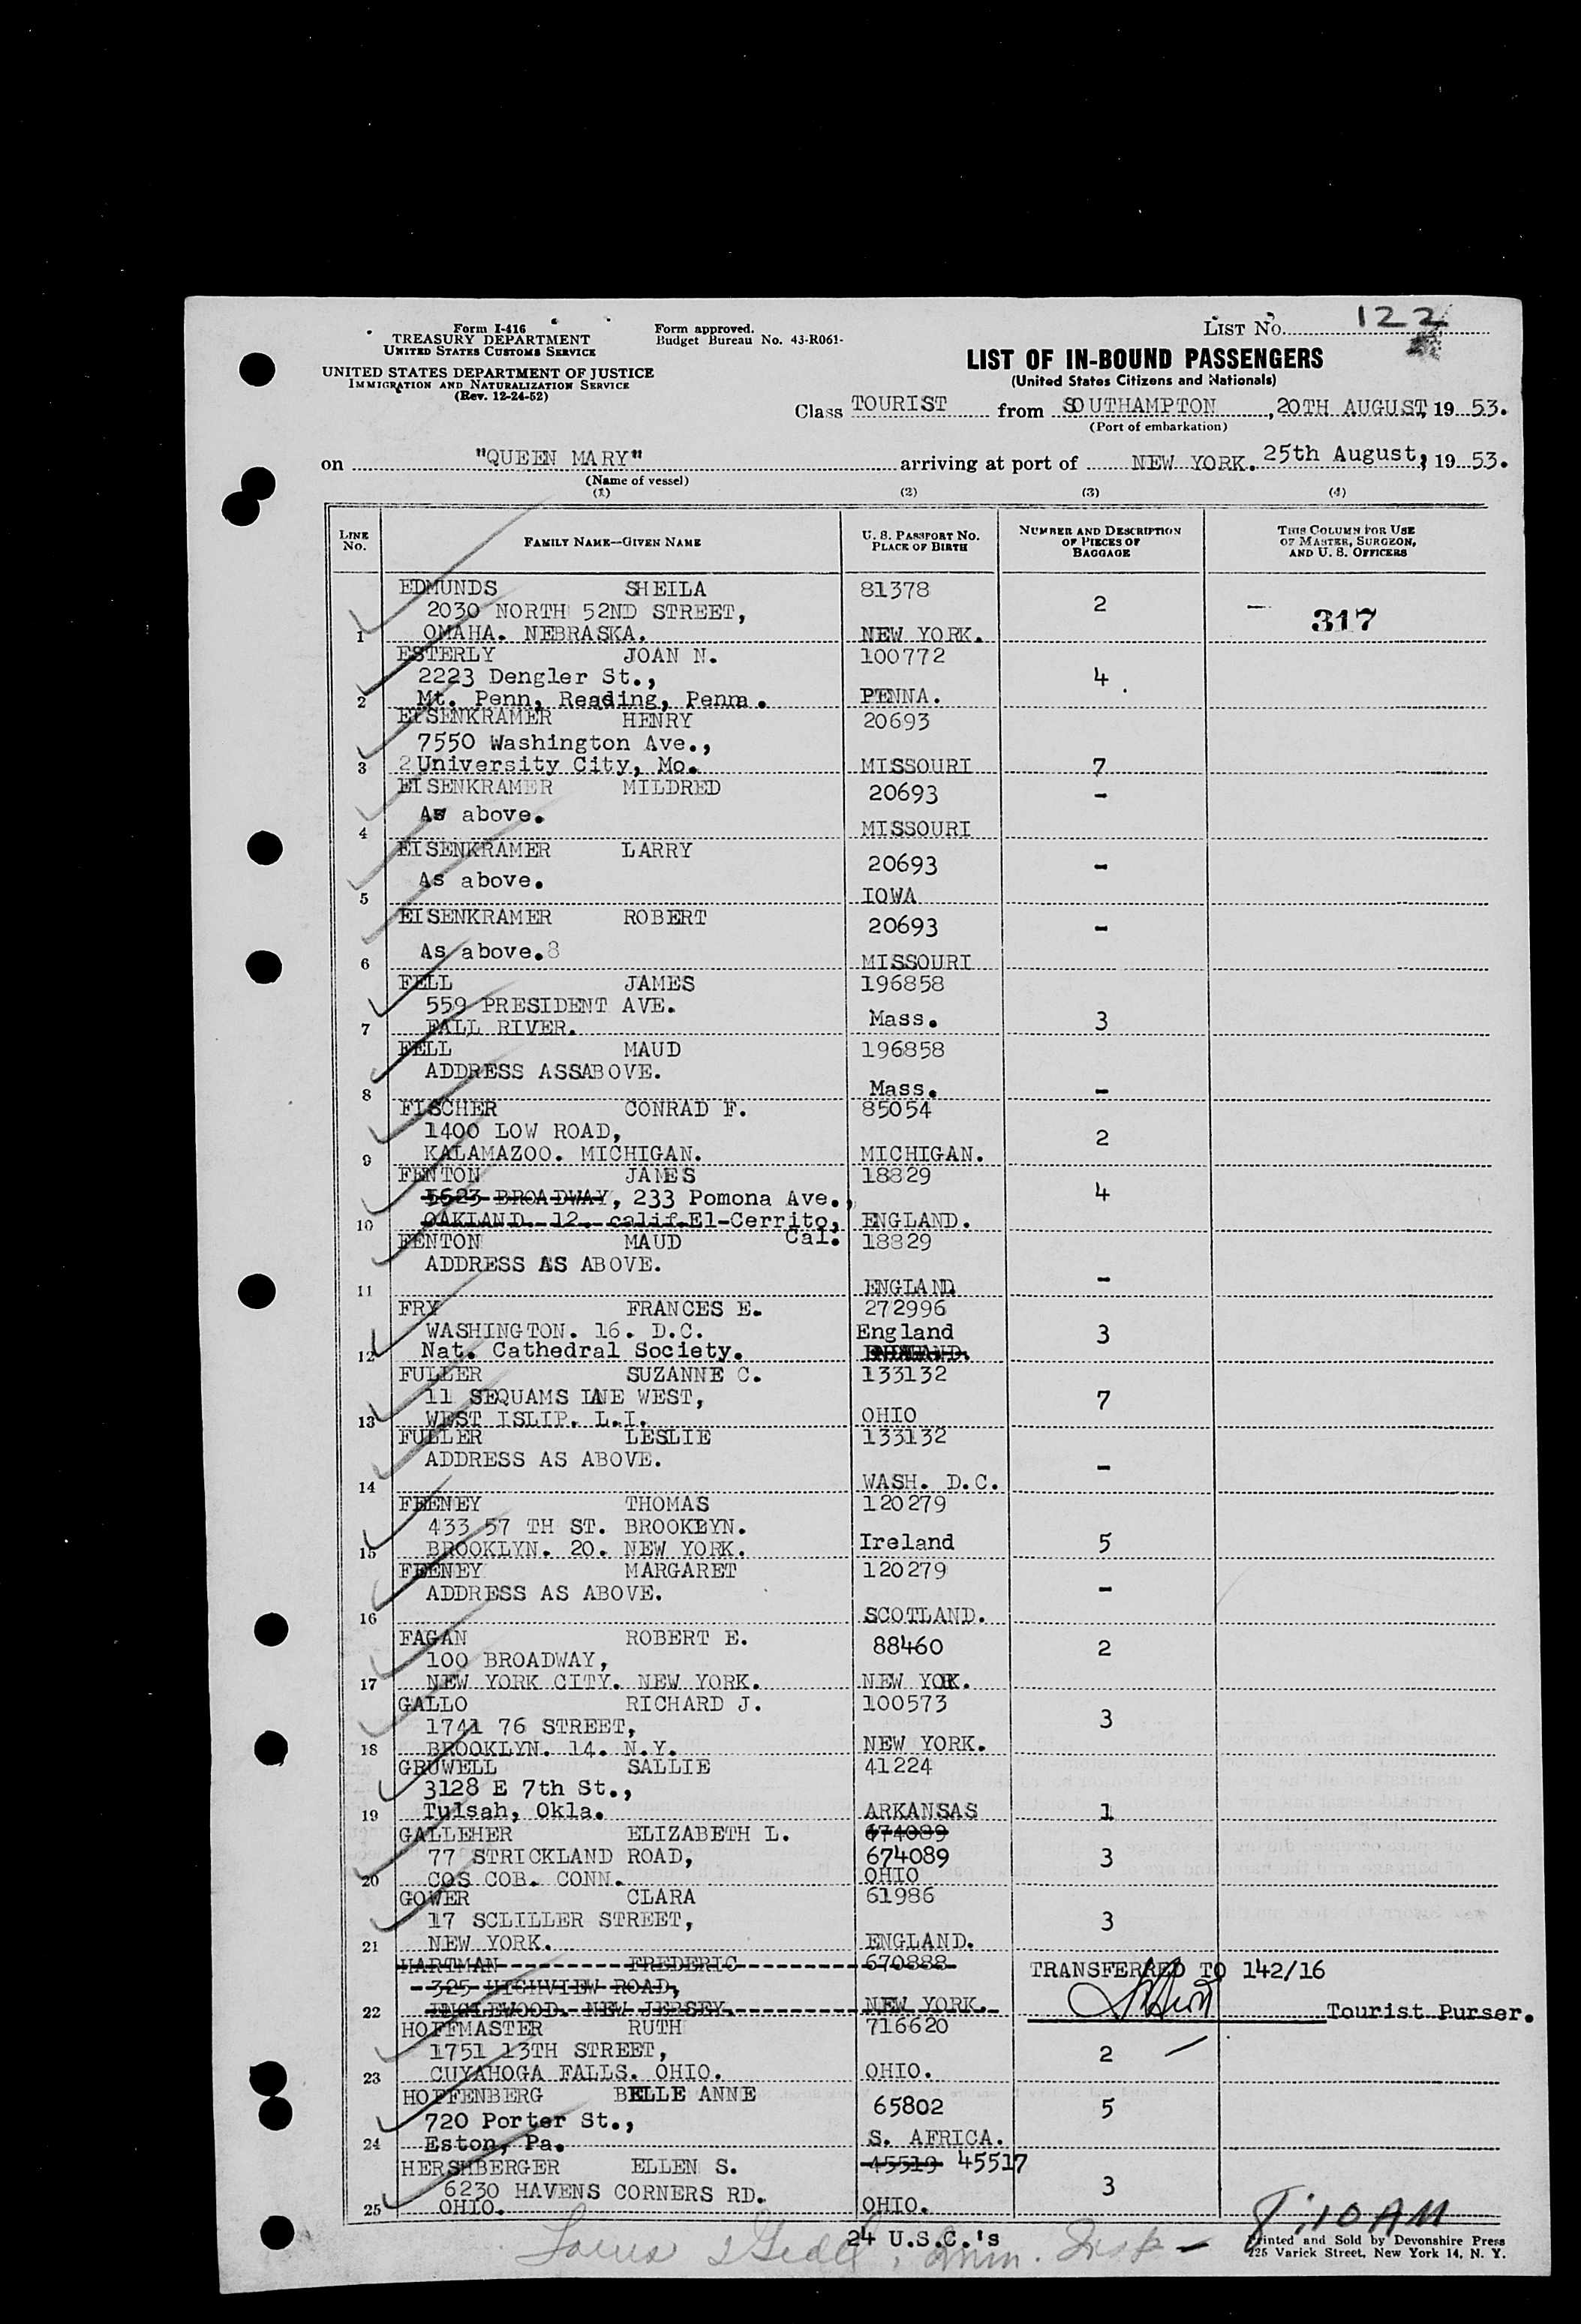 Form I-416
TREASURY DEPARTMENT
UNITED STATES CUSTOMS SERVICE
UNITED STATES DEPARTMENT OF JUSTICE
IMMIGRATION AND NATURALIZATION SERVICE
(Rev. 12-24-52)
Form approved.
Budget Bureau No. 43-R061-
LIST No. 122
LIST OF IN-BOUND PASSENGERS
(United States Citizens and Nationals)
Class TOURIST from SOUTHAMPTON, 20TH AUGUST, 19 53.
(Port of embarkation)
on "QUEEN MARY" arriving at port of NEW YORK. 25th August, 19 53.
(Name of vessel)
(1) (2) (3) (4)
LINE No. FAMILY NAME--GIVEN NAME U. S. PASSPORT No. PLACE OF BIRTH NUMBER AND DESCRIPTION OF PIECES OF BAGGAGE THIS COLUMN FOR USE OF MASTER, SURGEON, AND U. S. OFFICERS
EDMUNDS SHEILA 81378
2030 NORTH 52ND STREET, 2 - 317
1 OMAHA. NEBRASKA. NEW YORK.
ESTERLY JOAN N. 100772
2223 Dengler St., 4
2 Mt. Penn, Reading, Penna. PENNA.
EISENKRAMER HENRY 20693
7550 Washington Ave.,
3 2 University City, Mo. MISSOURI 7
EISENKRAMER MILDRED 20693 -
As above.
4 MISSOURI
EISENKRAMER LARRY 20693 -
As above.
5 IOWA
EISENKRAMER ROBERT 20693 -
As above.8
6 MISSOURI
FELL JAMES 196858
559 PRESIDENT AVE.
7 FALL RIVER. Mass. 3
FELL MAUD 196858
ADDRESS ASSABOVE.
8 Mass. -
FISCHER CONRAD F. 85054
1400 LOW ROAD, 2
9 KALAMAZOO. MICHIGAN. MICHIGAN.
FENTON JAMES 18829
5623 BROADWAY, 233 Pomona Ave., 4
10 OAKLAND. 12. calif. El-Cerrito, ENGLAND.
FENTON MAUD Cal. 18829
ADDRESS AS ABOVE.
11 ENGLAND -
FRY FRANCES E. 272996
WASHINGTON. 16. D.C. England 3
12 Nat. Cathedral Society.
FULLER SUZANNE C. 133132
11 SEQUAMS LNE WEST, 7
13 WEST ISLIP. L.I. OHIO
FULLER LESLIE 133132
ADDRESS AS ABOVE. -
14 WASH. D.C.
FEENEY THOMAS 120279
433 57 TH ST. BROOKLYN.
15 BROOKLYN. 20. NEW YORK. Ireland 5
FEENEY MARGARET 120279
ADDRESS AS ABOVE. -
16 SCOTLAND.
FAGAN ROBERT E. 88460 2
100 BROADWAY,
17 NEW YORK CITY. NEW YORK. NEW YORK.
GALLO RICHARD J. 100573
1741 76 STREET, 3
18 BROOKLYN. 14. N.Y. NEW YORK.
GRUWELL SALLIE 41224
3128 E 7th St.,
19 Tulsah, Okla. ARKANSAS 1
GALLEHER ELIZABETH L. 674089
77 STRICKLAND ROAD, 674089 3
20 COS COB. CONN. OHIO
GOWER CLARA 61986
17 SCLILLER STREET, 3
21 NEW YORK. ENGLAND.
HARTMAN FREDERIC 670888 TRANSFERRED TO 142/16
325 HIGHVIEW ROAD,
22 INGLEWOOD. NEW JERSEY. NEW YORK. Tourist Purser.
HOFFMASTER RUTH 716620
1751 13TH STREET, 2
23 CUYAHOGA FALLS. OHIO. OHIO.
HOPFENBERG BELLE ANNE 65802 5
720 Porter St.,
24 Eston, Pa. S. AFRICA.
HERSHBERGER ELLEN S. 45519 45517
6230 HAVENS CORNERS RD. 3
25 OHIO. OHIO.
24 U.S.C.'s
8:10 AM
Printed and Sold by Devonshire Press
225 Varick Street, New York 14, N. Y.